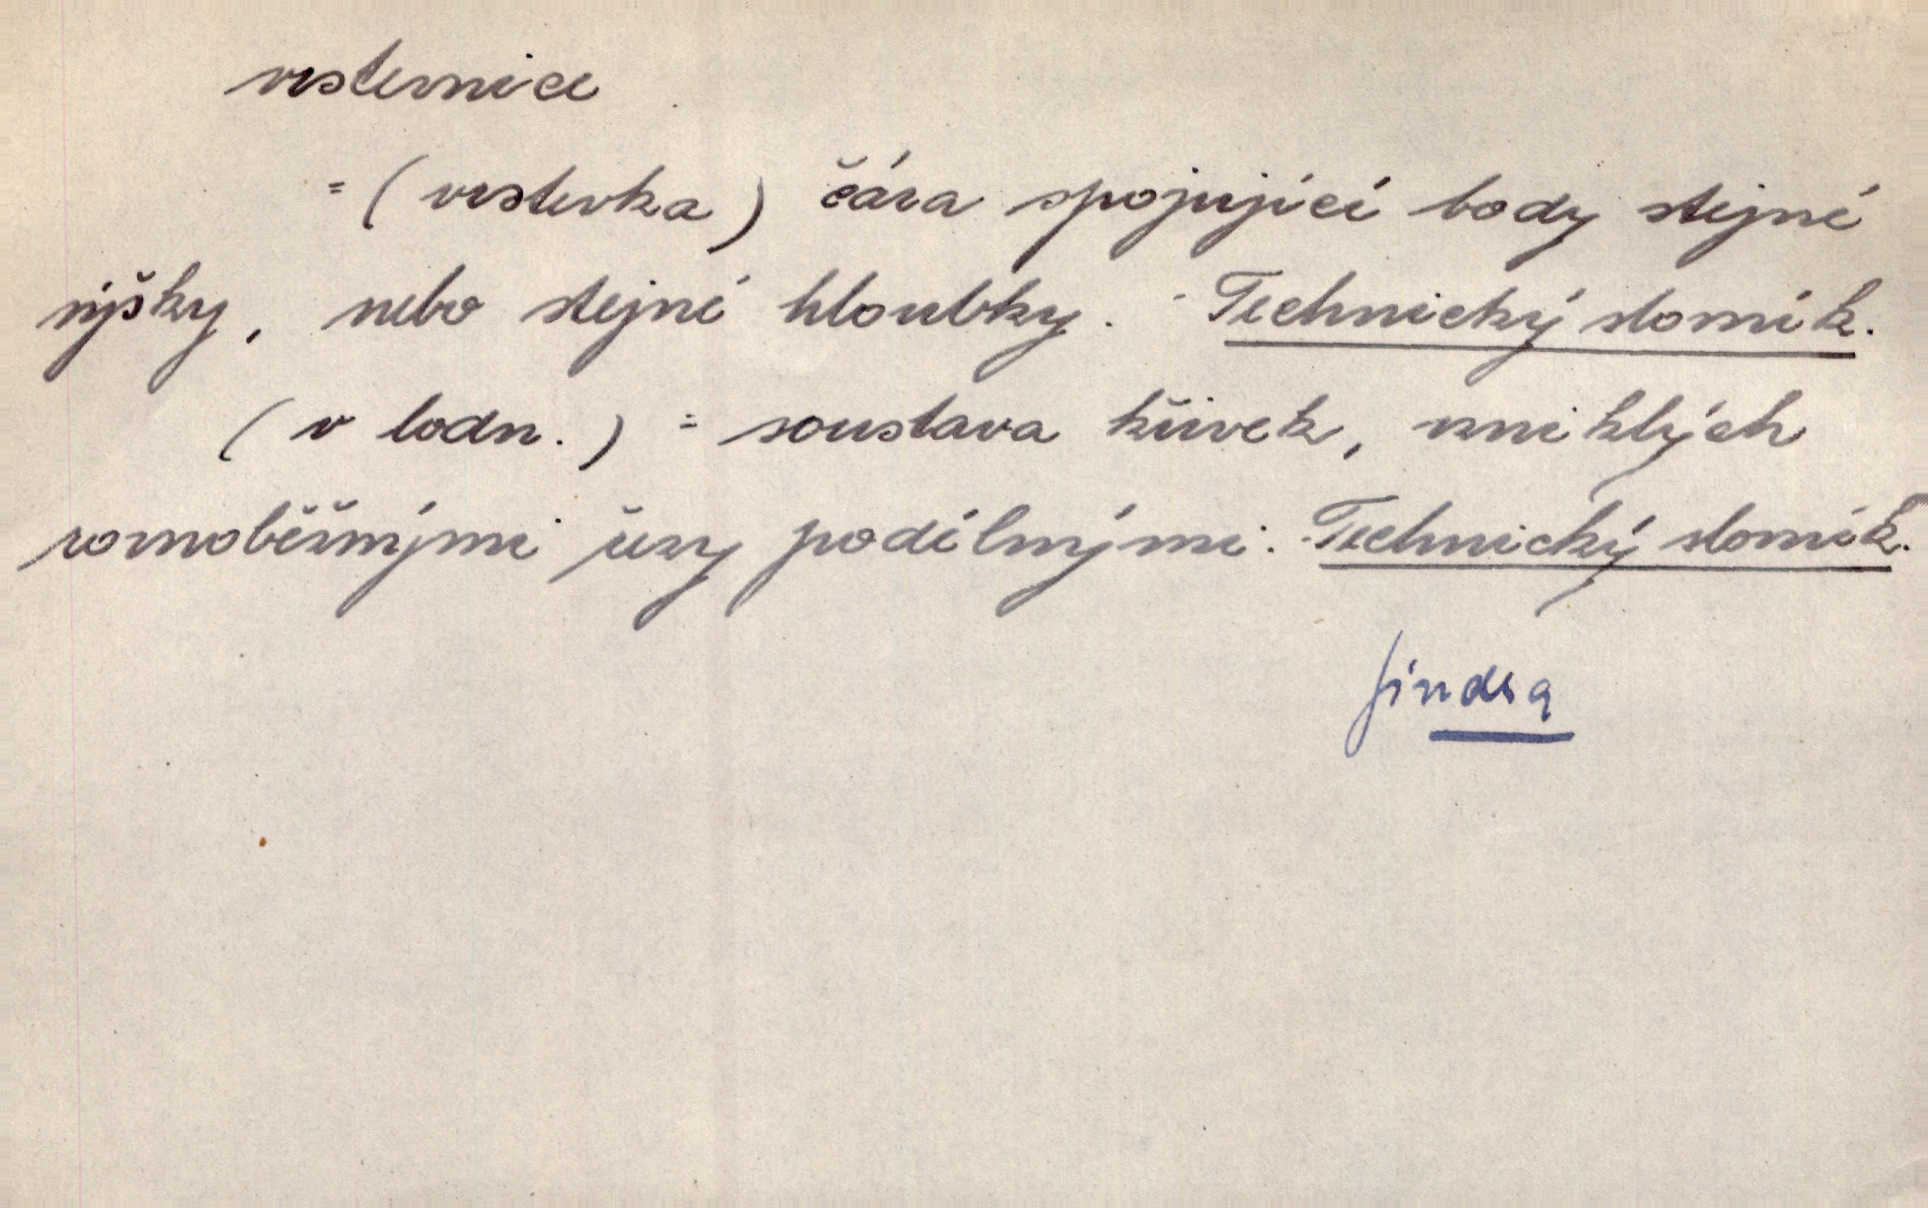 vrstevnice
= (vrstevka) čára spojující body stejné
výšky, nebo stejné hloubky. Technický slovník.
(v lodn.) = soustava křivek, vzniklých
rovnoběžnými řezy podélnými. Technický slovník.
Jindra